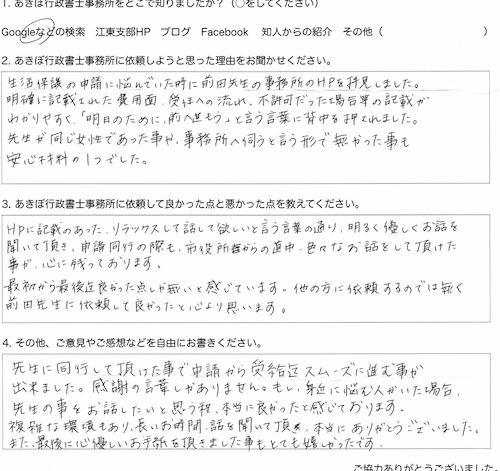 1. あきぼ行政書士事務所をどこで知りましたか？（○をしてください）
Googleなどの検索　江東支部HP　ブログ　Facebook　知人からの紹介　その他（　　　　　　　）
2. あきぼ行政書士事務所に依頼しようと思った理由をお聞かせください。
生活保護の申請に悩んでいた時に前田先生の事務所のHPを拝見しました。
明確に記載された費用面、受任への流れ、不許可だった場合等の記載が
わかりやすく、「明日のために、前へ進もう」と言う言葉に背中を押されました。
先生が同じ女性であった事や、事務所へ伺うと言う形で無かった事も
安心材料の1つでした。
3. あきぼ行政書士事務所に依頼して良かった点と悪かった点を教えてください。
HPに記載のあった、リラックスして話して欲しいと言う言葉の通り、明るく優しくお話を
聞いて頂き、申請同行の際も、市役所からの道中、色々なお話をして頂けた
事が、心に残っております。
最初から最後迄良かった点しか無いと感じています。他の方に依頼するのでは無く
前田先生に依頼して良かったと心より思います。
4. その他、ご意見やご感想などを自由にお書きください。
先生に同行して頂けた事で申請から受給迄スムーズに進む事が
出来ました。感謝の言葉しかありません。もし、身近に悩む人がいた場合、
先生の事をお話したいと思う程、本当に良かったと感じております。
複雑な環境もあり、長いお時間、話を聞いて頂き、本当にありがとうございました。
また、最後に心優しいお手紙を頂きました事もとても嬉しかったです。
ご協力ありがとうございました。